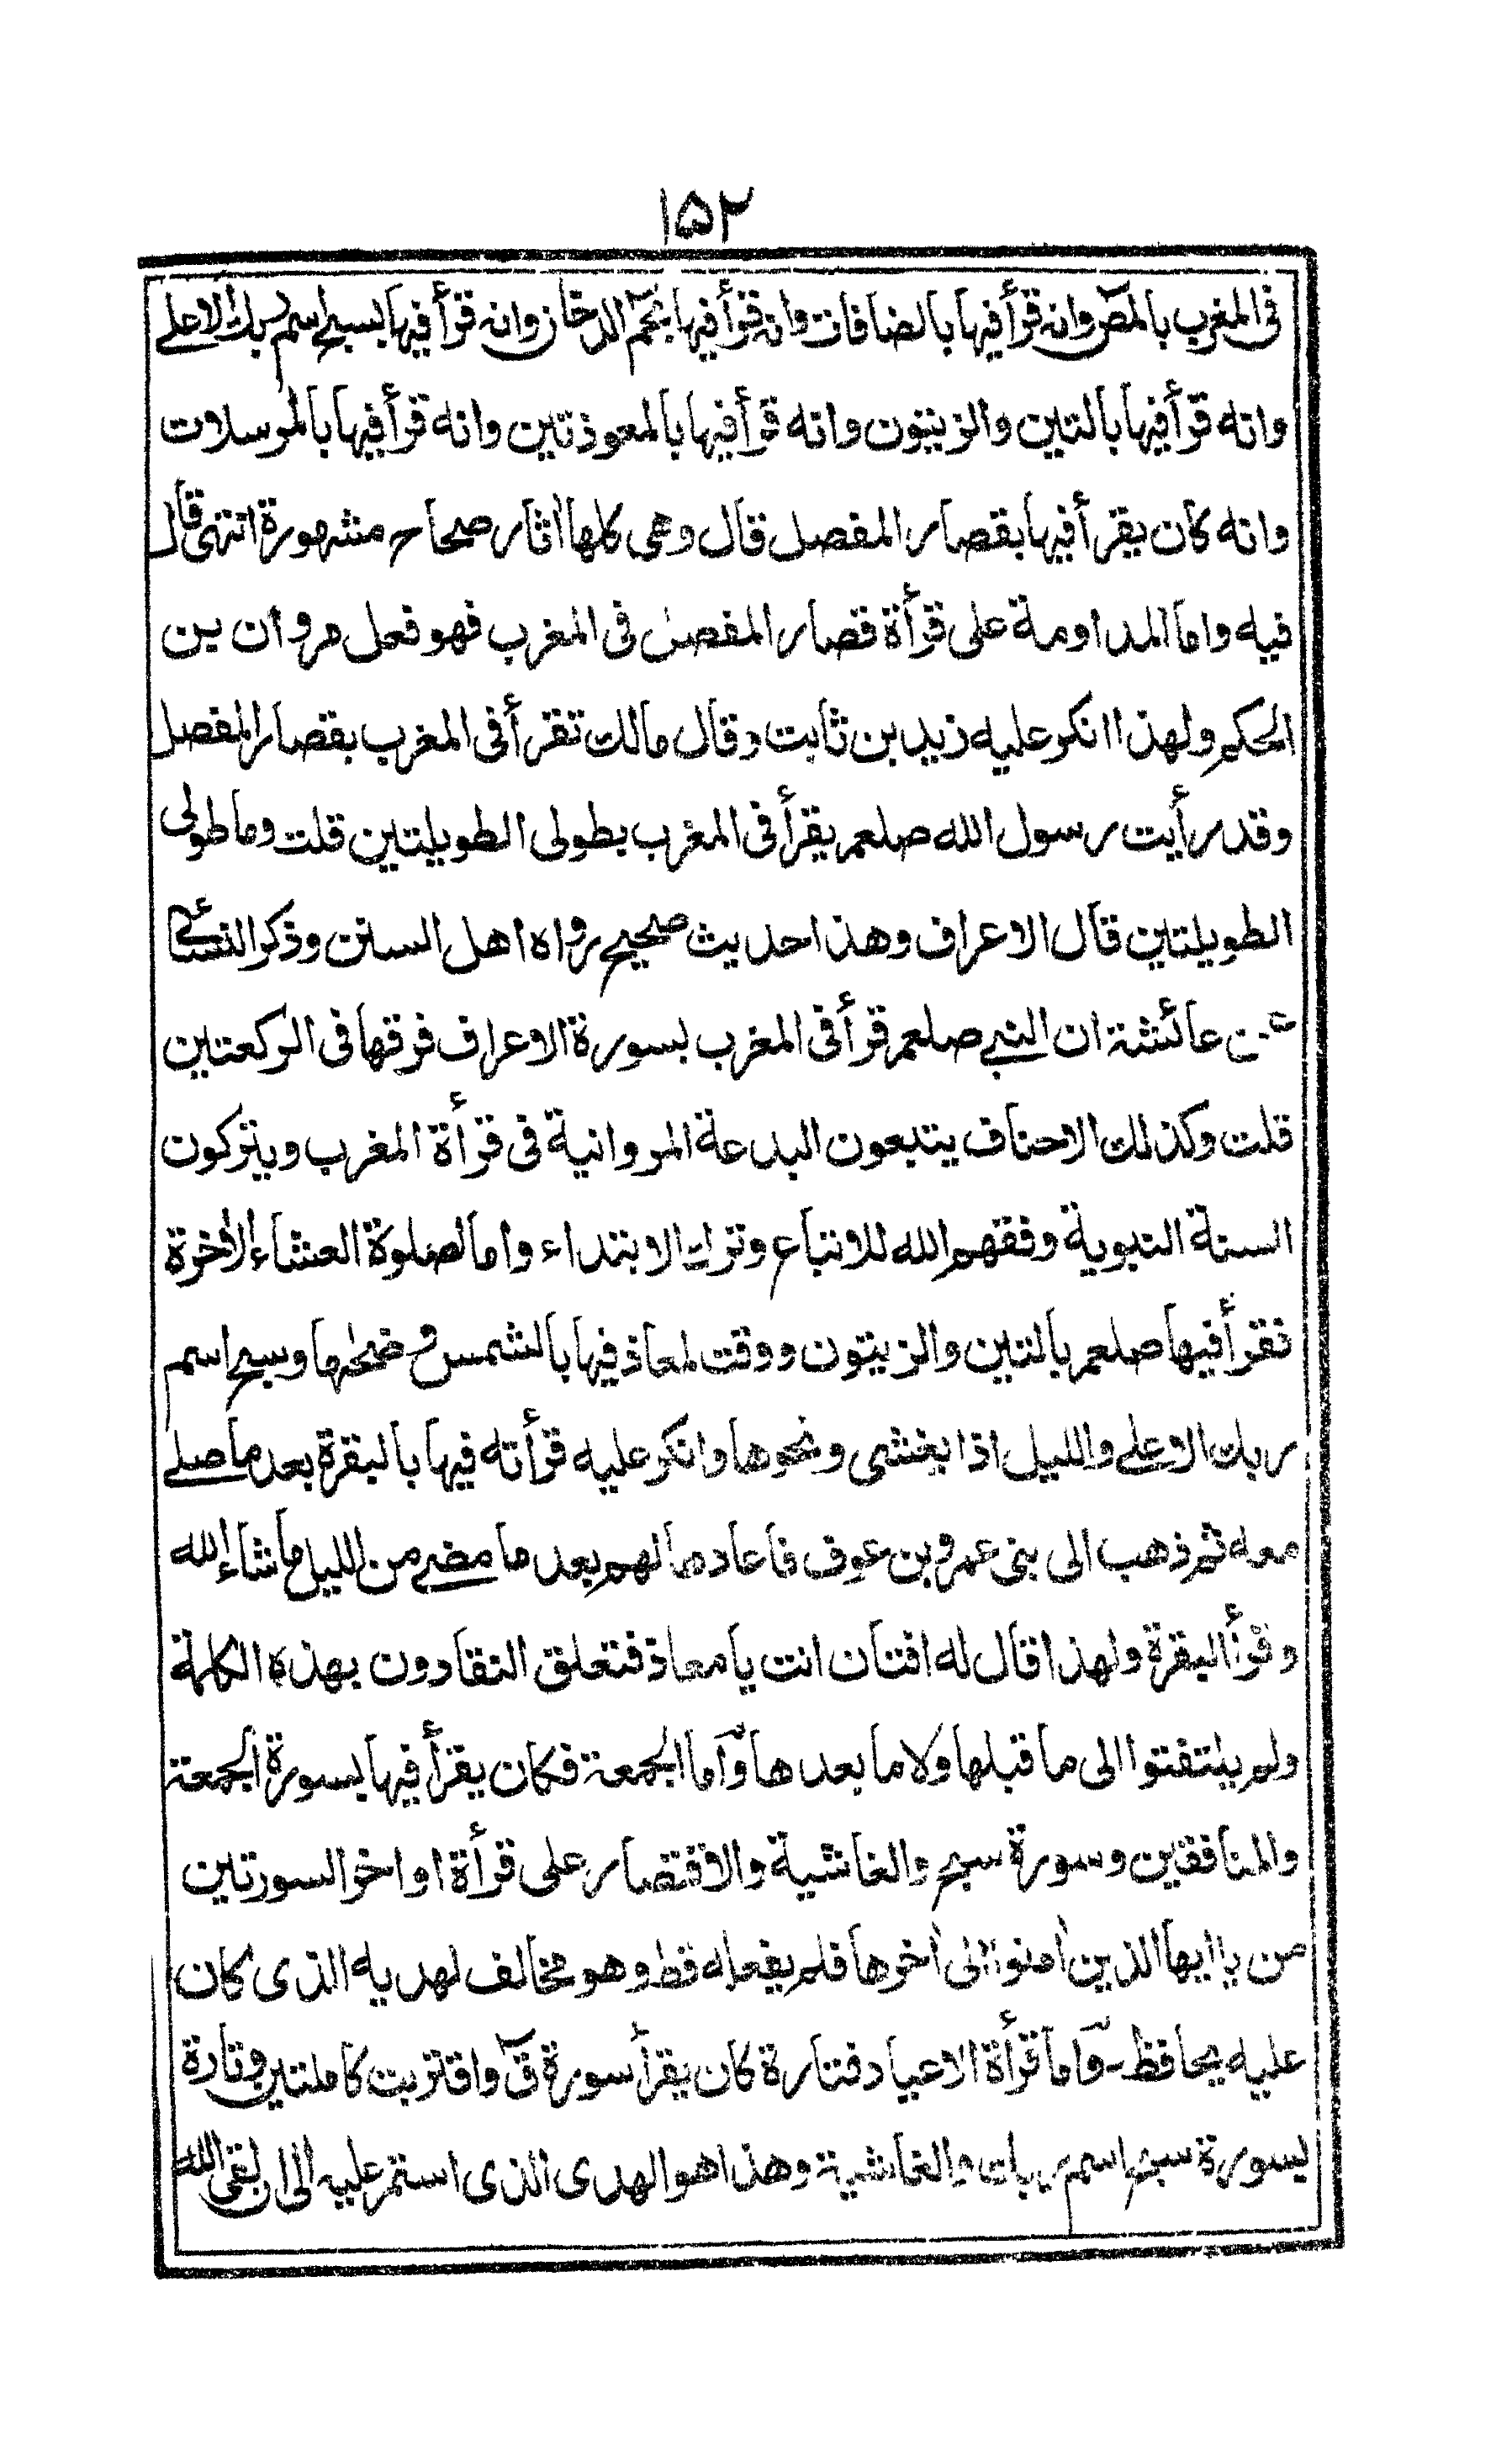 ۱۵۲
فى المغرب بالمص وانه قرأ فيها بالصافات وانه قرأ فيها بحم الدخان وانه قرأ فيها بسبح اسم ربك الاعلى
وانه قرأ فيها بالتين والزيتون وانه قرأ فيها بالمعوذتين وانه قرأ فيها بالمرسلات
وانه كان يقرأ فيها بقصار المفصل قال وهى كلها اثار صحاح مشهورة انتهى قال
فيه واما المداومة على قرأة قصار المفصل فى المغرب فهو فعل مروان بن
الحكم ولهذا انكر عليه زيد بن ثابت وقال مالك تقرأ فى المغرب بقصار المفصل
وقد رأيت رسول الله صلعم يقرأ فى المغرب بطولى الطويلتين قلت وما طولى
الطويلتين قال الاعراف وهذا حديث صحيح رواه اهل السنن وذكر النسائى
عن عائشة ان النبى صلعم قرأ فى المغرب بسورة الاعراف فرقها فى الركعتين
قلت وكذلك الاحناف يتبعون البدعة المروانية فى قرأة المغرب ويتركون
السنة النبوية وفقهم الله للاتباع وترك الابتداء واما لصلوة العشاء الاخرة
فقرأ فيها صلعم بالتين والزيتون ووقت لمعاذ فيها بالشمس وضحٰها وسبح اسم
ربك الاعلى والليل اذا يغشى ونحوها وانكر عليه قرأته فيها بالبقرة بعد ما صلى
معه ثم ذهب الى بنى عمرو بن عوف فاعادها لهم بعد ما مضى من الليل ما شاء الله
وقرأ البقرة ولهذا قال له افتان انت يا معاذ فتعلق النقادون بهذه الكلمة
ولم يلتفتوا الى ما قبلها ولا ما بعدها واما الجمعة فكان يقرأ فيها بسورة الجمعة
والمنافقين وسورة سبح والغاشية والاقتصار على قرأة اواخر السورتين
من يا ايها الذين امنوا الى اخرها فلم يفعله قط وهو مخالف لهديه الذى كان
عليه يحافظ - واما قرأة الاعياد فتارة كان يقرأ سورة ق واقتربت كاملتين وتارة
بسورة سبح اسم ربك والغاشية وهذا هو الهدى الذى استمر عليه الى ان لقى الله